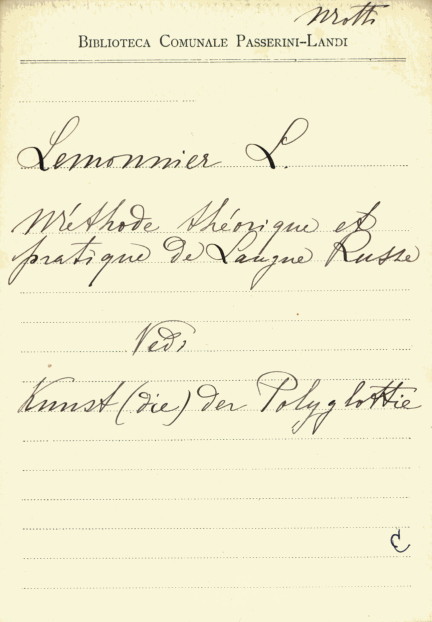 Biblioteca Comunale Passerini-Landi
Lemonnier L.
Méthode théorique et
pratique de Langue Russe
Vedi
Kunst (die) der Polyglottie
C